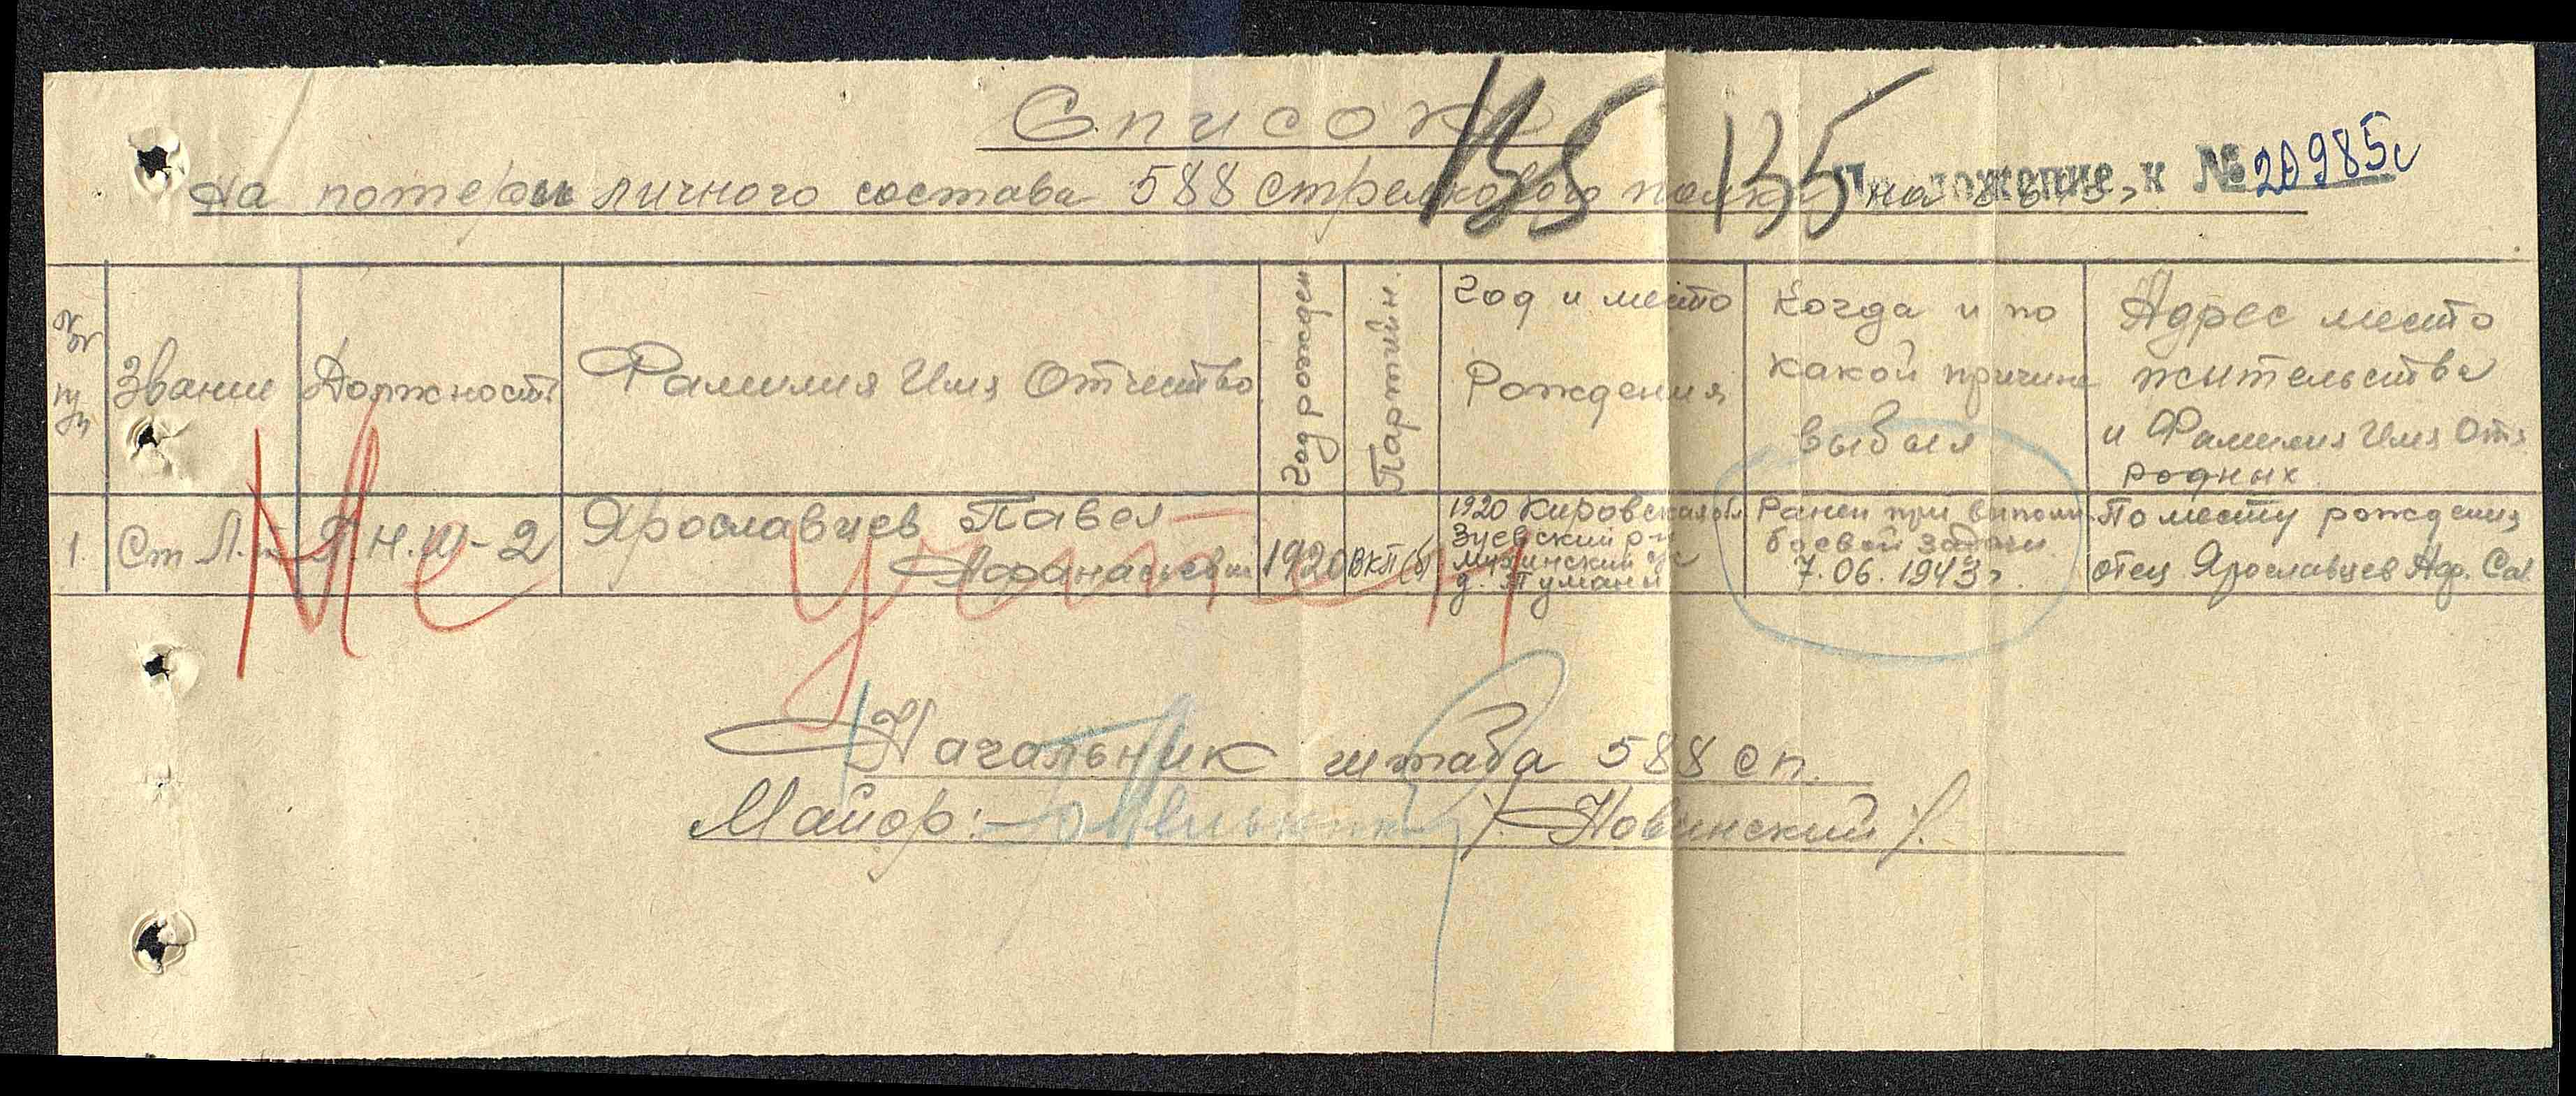 Список
135 135
Приложение к № 20985с
На потери личного состава 588 стрелкового полка на
№№ пп
Звание
Должность
Фамилия Имя Отчество
Год рожден
Партийн.
Год и место
Рождения
Когда и по
какой причине
выбыл
Адрес место
жительства
и Фамилия Имя Отч
родных
1.
Ст Л-т
П.Н.Ш-2
Ярославцев Павел
Афанасьевич
1920
ВКП(б)
1920 Кировская обл
Зуевский р-н
Мухинский с/с
д. Туманы
Ранен при выполн.
боевой задачи
7.06.1943г.
По месту рождения
отец Ярославцев Аф.
Не учтен
Начальник штаба 588 сп.
Майор: /Новинский/.